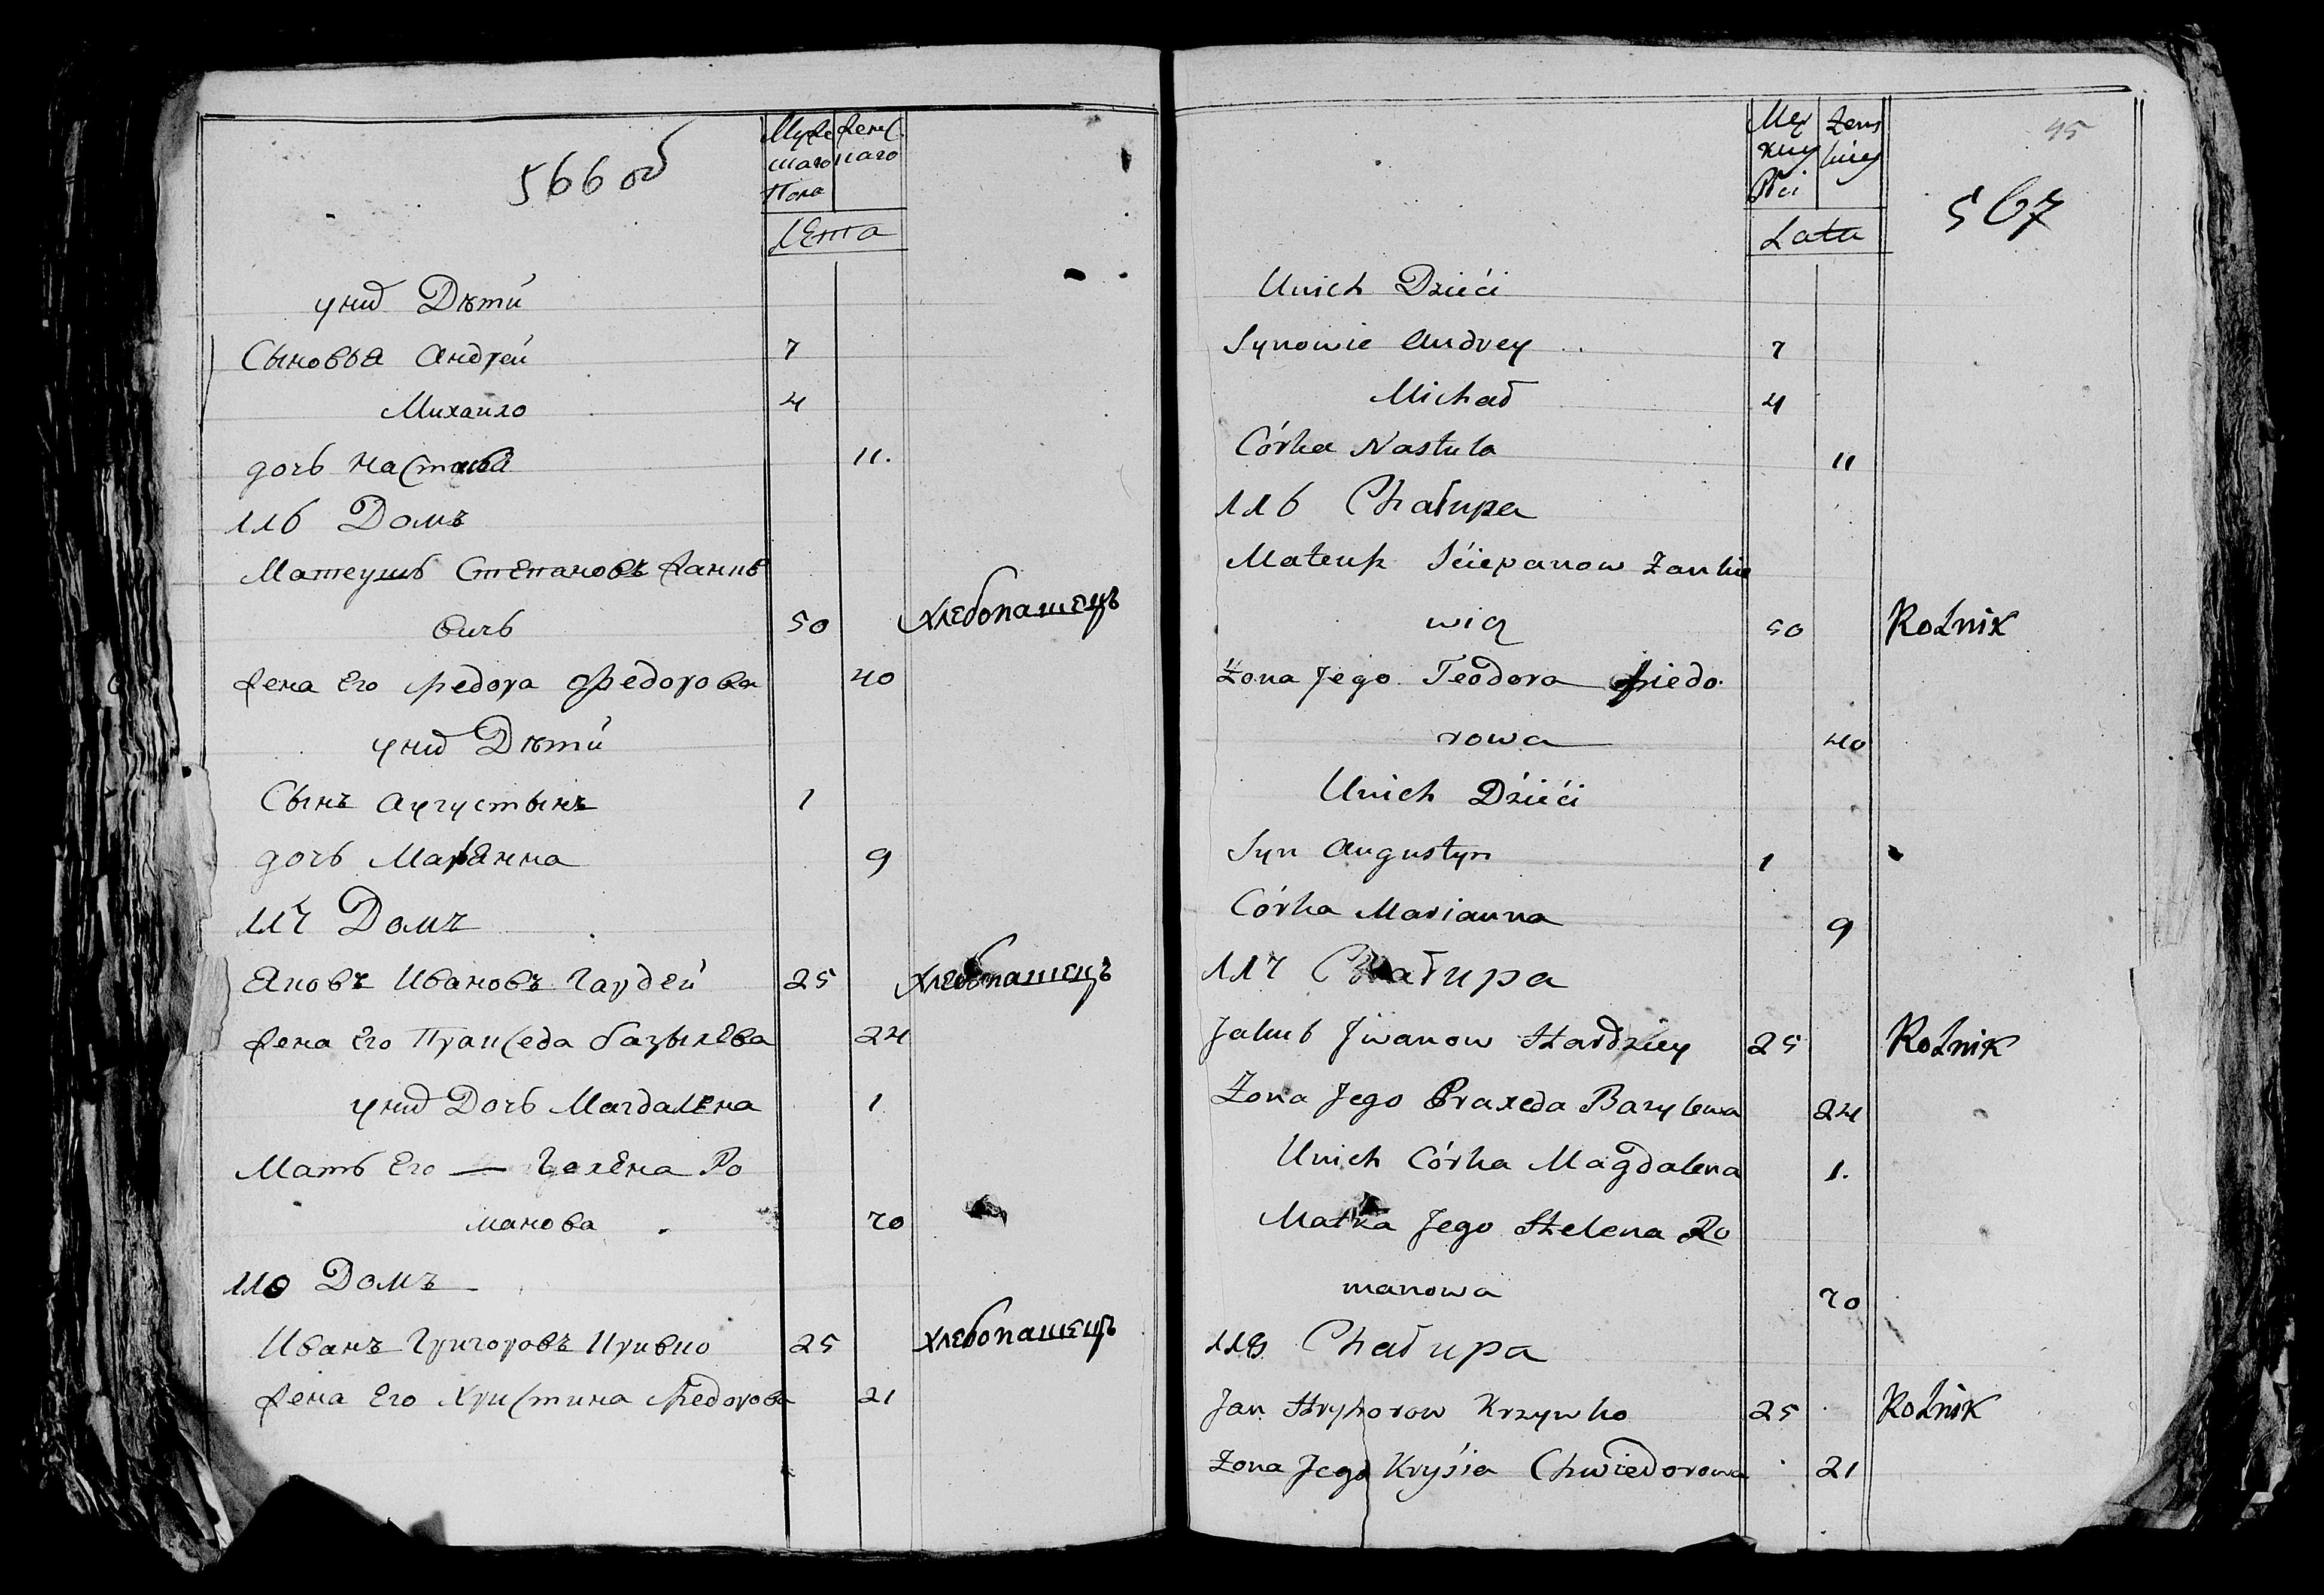 566 об
Муже Женс
скаго каго
Пола
лЕта
у нид Дѣти
Сыновья Андрей 7
Михаило 4
дочь Настася 11.
116 Домъ
Матеушъ СтЕпановъ Жанке
вичь 50 хлебопашецъ
Жена Его Федора Федорова 40
у нид Дѣти
Сынъ Аугустынъ 1
дочь Маріянна 9
117 Домъ
Яковъ Ивановъ Гардей 25 хлебопашецъ
Жена Его Праkседа базылЕва 24
у нид Дочь МагдалЕна 1
Мать Его — ГелЕна Ро
манова 70
118 Домъ
Иванъ Григоровъ Кривко 25 хлебопашецъ
Жена Его Христина Федорова 21
45
567
Męz Żens
kiey kiey
Płci
Lata
Unich Dzieci
Synowie Andrey 7
Michał 4
Córka Nastula 11
116 Chałupa
Mateusz Sciepanow Zankie
wicz 50 Rolnik
Żona Jego Teodora Fiedo
rowa 40
Unich Dzieci
Syn Augustyn 1
Córka Marianna 9
117 Chałupa
Jakub Jwanow Hardziey 25 Rolnik
Żona Jego Praxeda Bazylewa 24
Unich Córka Magdalena 1.
Matka Jego Helena Ro
manowa 70
118 Chałupa
Jan Hryhorow Krzywko 25 Rolnik
Żona Jego Kryśia Chwiedorowa 21